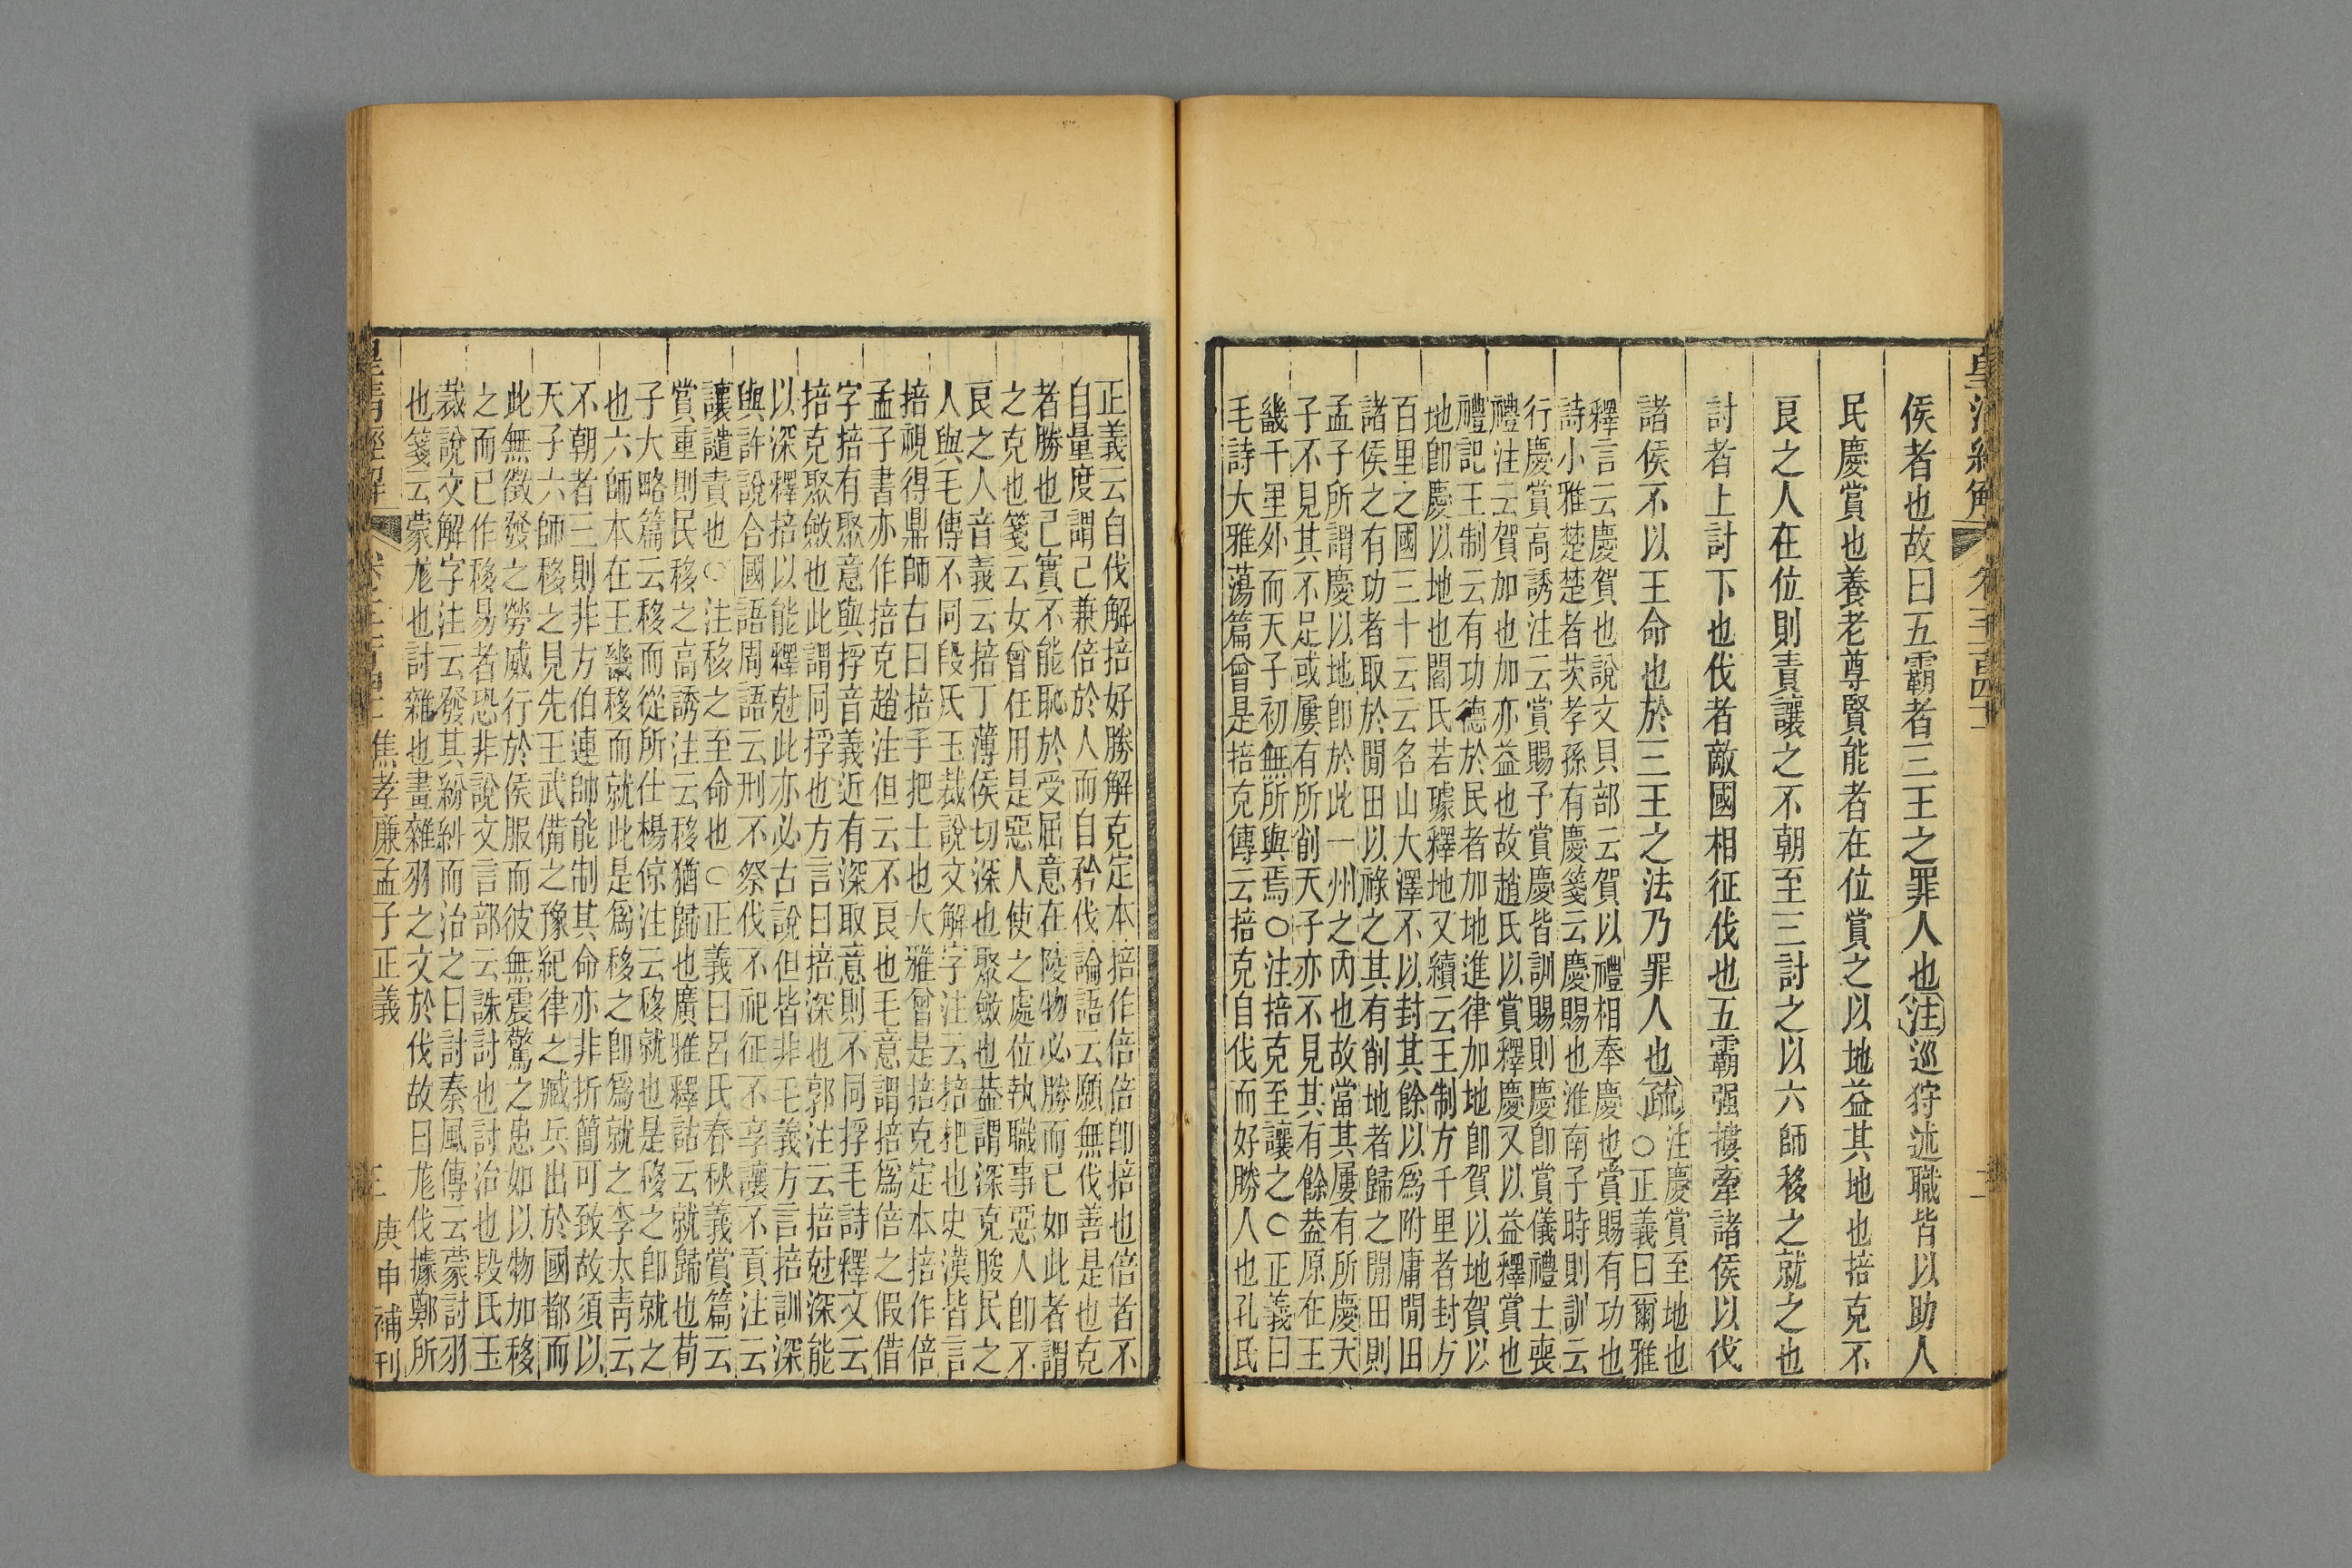 侯者也故曰五霸者三王之罪人也注巡狩述職皆以助人
民慶賞也養老尊賢能者在位賞之以地益其地也掊克不
良之人在位則責讓之不朝至三討之以六師移之就之也
討者上討下也伐者敵國相征伐也五霸强摟牽諸侯以伐
諸侯不以王命也於三王之法乃罪人也疏
注慶賞至地也
○正義曰爾雅
釋言云慶賀也說文貝部云賀以禮相奉慶也賞賜有功也
詩小雅楚楚者茨孝孫有慶箋云慶賜也淮南子時則訓云
行慶賞高誘注云賞賜予賞慶皆訓賜則慶卽賞儀禮士喪
禮注云賀加也加亦益也故趙氏以賞釋慶又以益釋賞也
禮記王制云有功德於民者加地進律加地卽賀以地賀以
地卽慶以地也閻氏若璩釋地又續云王制方千里者封方
百里之國三十云云名山大澤不以封其餘以爲附庸閒田
諸侯之有功者取於閒田以祿之其有削地者歸之閒田則
孟子所謂慶以地卽於此一州之內也故當其屢有所慶天
子不見其不足或屢有所削天子亦不見其有餘葢原在王
畿千里外而天子初無所與焉○注掊克至讓之○正義曰
毛詩大雅蕩篇曾是掊克傳云掊克自伐而好勝人也孔氏
正義云自伐解掊好勝解克定本掊作倍倍卽掊也倍者不
自量度謂己兼倍於人而自矜伐論語云願無伐善是也克
者勝也己實不能恥於受屈意在陵物必勝而已如此者謂
之克也箋云女曾任用是惡人使之處位執職事惡人卽不
良之人音義云掊丁薄侯切深也聚斂也葢謂深克朘民之
人與毛傳不同段氏玉裁說文解字注云掊把也史漢皆言
掊視得鼎師古曰掊手把土也大雅曾是掊克定本掊作倍
孟子書亦作掊克趙注但云不良也毛意謂掊爲倍之假借
字掊有聚意與捊音義近有深取意則不同捊毛詩釋文云
掊克聚斂也此謂同捊也方言曰掊深也郭注云掊尅深能
以深釋掊以能釋尅此亦必古說但皆非毛義方言掊訓深
與許說合國語周語云刑不祭伐不祀征不享讓不貢注云
讓譴責也○注移之至命也○正義曰呂氏春秋義賞篇云
賞重則民移之高誘注云移猶歸也廣雅釋詁云就歸也荀
子大略篇云移而從所仕楊倞注云移就也是移之卽就之
也六師本在王畿移而就此是爲移之卽爲就之李太青云
不朝者三則非方伯連帥能制其命亦非折簡可致故須以
天子六師移之見先王武備之豫紀律之臧兵出於國都而
此無徵發之勞威行於侯服而彼無震驚之患如以物加移
之而已作移易者恐非說文言部云誅討也討治也段氏玉
裁說文解字注云發其紛糾而治之曰討秦風傳云蒙討羽
也箋云蒙尨也討雜也畫雜羽之文於伐故曰尨伐據鄭所
焦孝廉孟子正義
庚申補刊